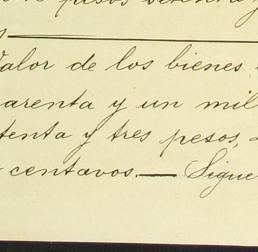 pesos setenta y
Valor de los bienes
arenta y un mil
tenta y tres pesos,
centavos.— Sigue